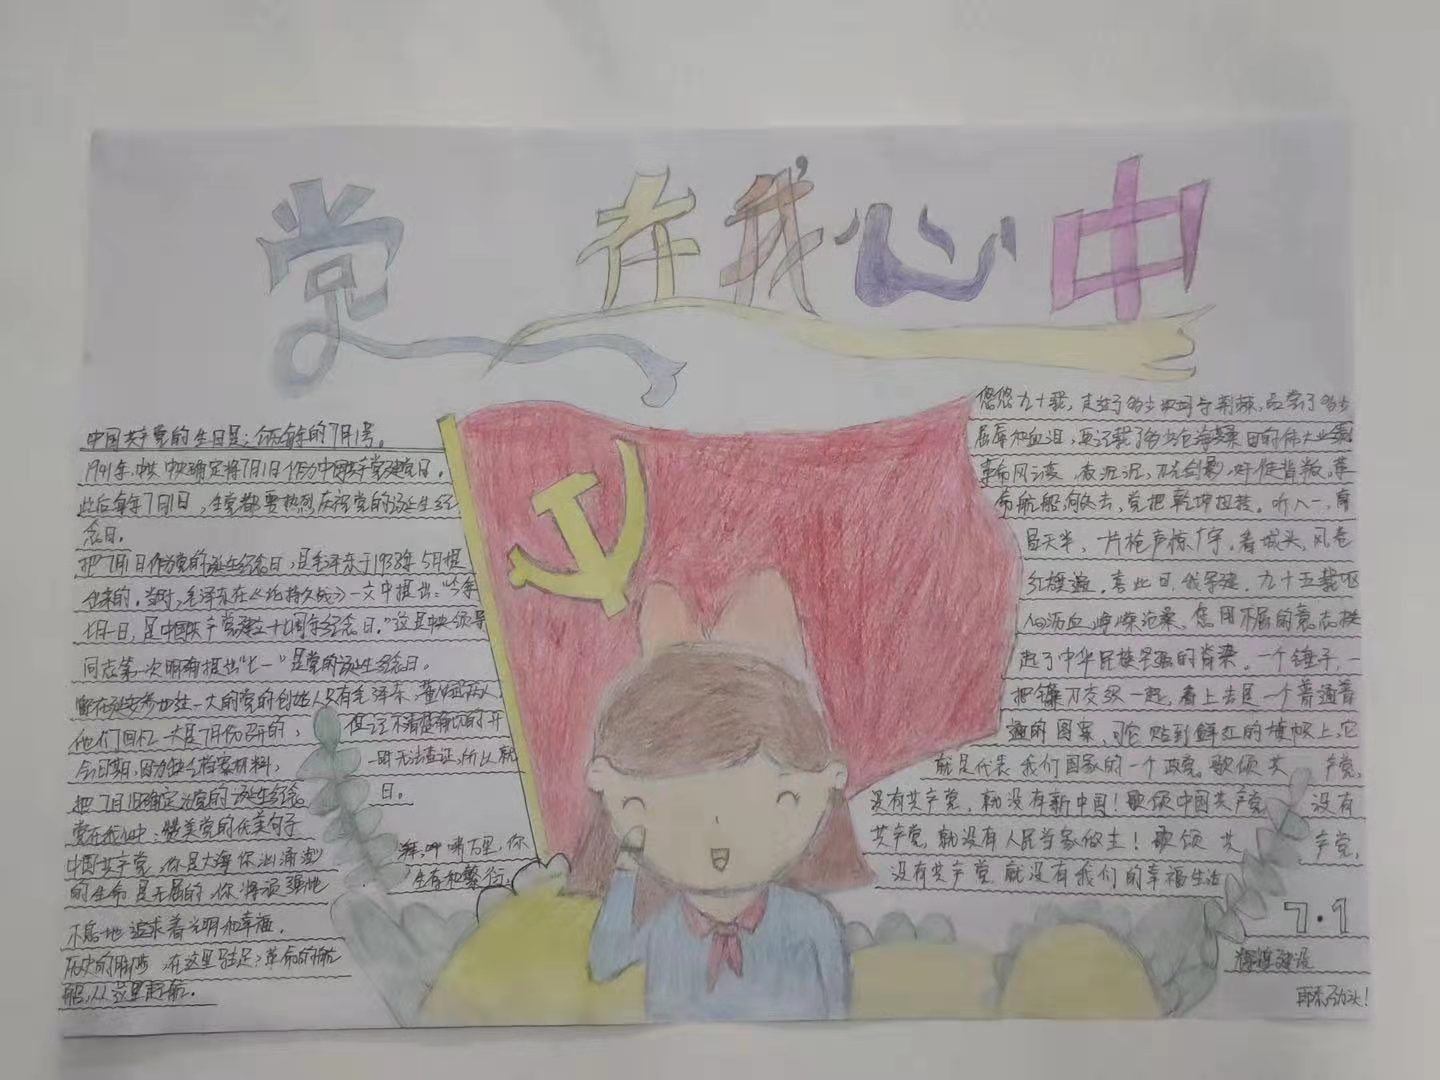 党在我心中
中国共产党的生日是:公历每年的7月1号。
1941年,中共中央确定将7月1日作为中国共产党建党日。
此后每年7月1日,全党都要热烈庆祝党的诞生纪
念日。
把7月1日作为党的诞生纪念日,是毛泽东于1938年5月提
出来的。当时,毛泽东在《论持久战》一文中提出:“今年
七月一日,是中国共产党建立十七周年纪念日。”这是中央领导
同志第一次明确提出“七一”是党的诞生纪念日。
大的党的创始人只有毛泽东、董必武两人,
他们回忆一大是7月份召开的,
但记不清楚确切的开
会日期,因为缺乏档案材料,
一时无法查证,所以就
把7月1日确定为党的诞生纪念
日。
党在我心中:赞美党的优美句子
中国共产党,你是大海你汹涌澎
湃,呼啸万里,你
的生命是无屈的,你将顽强地
生存和繁衍,
不息地追求着光明和幸福。
历史的脚步,在这里驻足;革命的航
船,从这里起航。
悠悠九十载,走过了多少坎坷与荆棘,品尝了多少
屈辱和血泪,更记载了多少沧海桑田的伟大业绩
革命风云
命航船何处去,党把乾坤扭转。
一片枪声惊
看城头,风卷
红旗
喜此日,我
九十五载
您用不屈的意志挺
起了中华民族坚强的脊梁。一个锤子,一
把镰刀交织一起,看上去是一个普通普
通的图案,可它贴到鲜红的旗帜上,它
就是代表我们国家的一个政党。歌颂共产党,
没有共产党,就没有新中国!歌颂中国共产党没有
共产党,就没有人民当家做主!歌颂共产党,
没有共产党就没有我们的幸福生活
7.1
建设